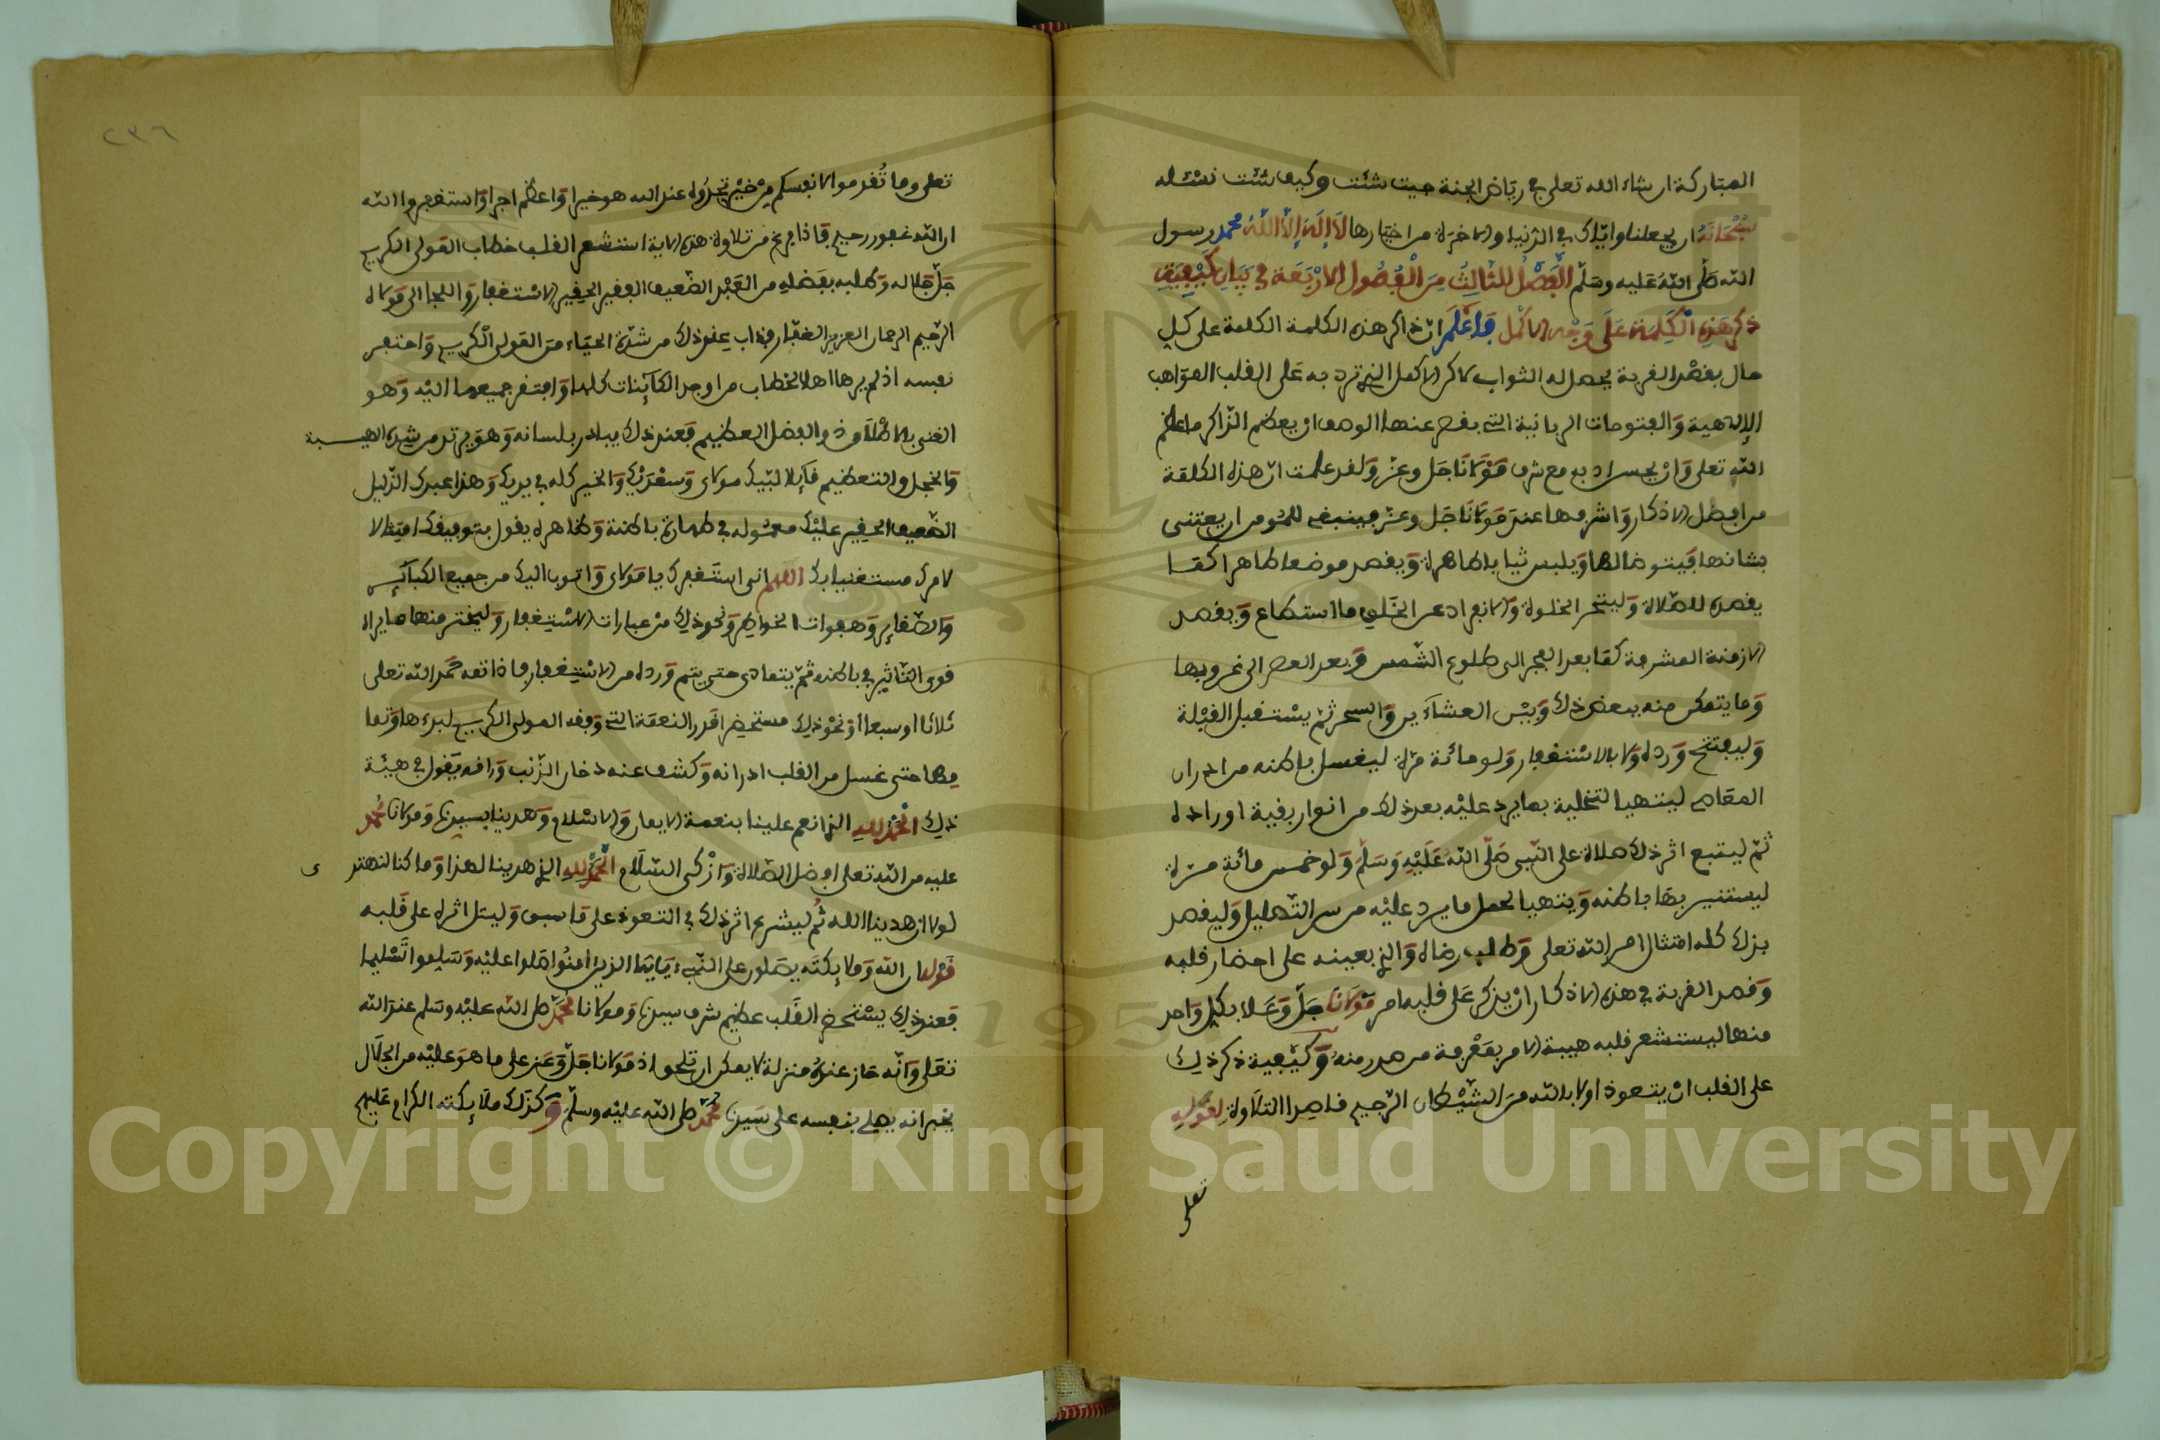 المباركة ان شاء الله تعلى في رياض الجنة حيث شئت وكيف شئت نسئله
سبحانه ان يجعلنا واياك في الدنيا والاخرة من اختارها لا إله إلا الله محمد رسول
الله صلى الله عليه وسلم الفصل الثالث من الفصول الاربعة في بيان كيفية
ذكر هذه الكلمة على وجه الاكمل فاعلم ان ذاكر هذه الكلمة الكلمة على كل
حال بقصد القربة يحصل له الثواب لاكن الاكمل الذي ترد به على القلب المواهب
الالهية والفتوحات الربانية التي يقصر عنها الوصف ان يعظم الذاكر ما عظم
الله تعلى وان يحسن ادبه مع شرف مولانا جل وعز ولقد علمت ان هذه الكلمة
من افضل الاذكار واشرفها عند مولانا جل وعز فينبغي للمومن ان يعتني
بشانها فيتوضا لها ويلبس ثيابا طاهرة ويقصد موضعا طاهرا كما
يقصده للصلاة وليتحر الخلوة والانفراد عن الخلق ما استطاع ويقصد
الازمنة المشرفة كما بعد الفجر الى طلوع الشمس وبعد العصر الى غروبها
وما يتمكن منه بعد ذلك وبين العشاءين والسحر ثم يستقبل القبلة
وليفتتح ورده ولا بالاستغفار ولو مائة مرة ليغسل باطنه من ادران
المعاصي ليتهيا لتحلية بما يرد عليه بعد ذلك من انوار بقية اوراده
ثم ليتبع اثر ذلك صلاة على النبي صلى الله عليه وسلم ولو خمس مائة مرة
ليستنير بها باطنه ويتهيا لحمل ما يرد عليه من سر التهليل وليقصد
بذلك كله امتثال امر الله تعلى وطلب رضاه والذي يعينه على احضار قلبه
وقصد القربة في هذه الاذكار ان يذكر على قلبه امر مولانا جل وعلا بكل واحد
منها ليستشعر قلبه هيبة الامر بمعرفة من صدر منه وكيفية ذكر ذلك
على القلب ان يتعوذ اولا بالله من الشيطان الرجيم قاصدا التلاوة لقوله
تعلى
٢٣٦
تعلى وما تقدموا لانفسكم من خير تجدوه عند الله هو خيرا واعظم اجرا واستغفروا الله
ان الله غفور رحيم فاذا فرغ من تلاوة هذه الاية استشعر القلب خطاب المولى الكريم
جل جلاله وطلبه بفضله من العبد الضعيف الفقير الحقير الاستغفار واللجا الى مولاه
الرحيم الرحمان العزيز الغفار فذاب عند ذلك من شدة الحياء من المولى الكريم واحتقر
نفسه اذ لم يرها اهلا لخطاب من اوجد الكائنات كلها وافتقر جميعها اليه وهو
الغني بالاطلاق ذو الفضل العظيم فعند ذلك يبادر بلسانه وهو يرتعد من شدة الهيبة
والخجل والتعظيم قائلا لبيك مولاي وسعديك والخير كله في يديك وهذا عبدك الذليل
الضعيف الحقير عليك معوله في طهارة باطنه وظاهره يقول بتوفيقك امتثالا
لامرك مستغنيا بك اللهم اني استغفرك يا مولاي واتوب اليك من جميع الكبائر
والصغائر وهفوات الخواطر ونحو ذلك من عبارات الاستغفار وليختر منها ما يراه
قوي التاثير في باطنه ثم يتمادى حتى يتم ورده من الاستغفار فاذا تمه حمد الله تعلى
ثلاثا او سبعا او نحو ذلك مستحضرا قدر النعمة التي وفقه المولى الكريم لبدءها وتما
مها حتى غسل من القلب ادرانه وكشف عنه دخان الذنب ورانه يقول في هيئة
ذلك الحمد لله الذي انعم علينا بنعمة الايمان والاسلام وهدينا بسيدنا ومولانا محمد
عليه من الله تعلى افضل الصلاة وازكى السلام الحمد لله الذي هدينا لهذا وما كنا لنهتدي
لولا ان هدينا الله ثم ليشرع اثر ذلك في التعوذ على ما سبق وليتل اثره على قلبه
قوله ان الله وملائكته يصلون على النبي ء يايها الذين امنوا صلوا عليه وسلموا تسليما
فعند ذلك يستحضر القلب عظيم شرف سيدنا ومولانا محمد صلى الله عليه وسلم عند الله
تعلى وانه حاز عنده منزلة لا يمكن ان تلحق اذ مولانا جل وعز على ما هو عليه من الجلال
يخبر انه يصلي بنفسه على سيدنا محمد صلى الله عليه وسلم وكذلك ملائكته الكرام عليهم
Copyright © King Saud University
1957